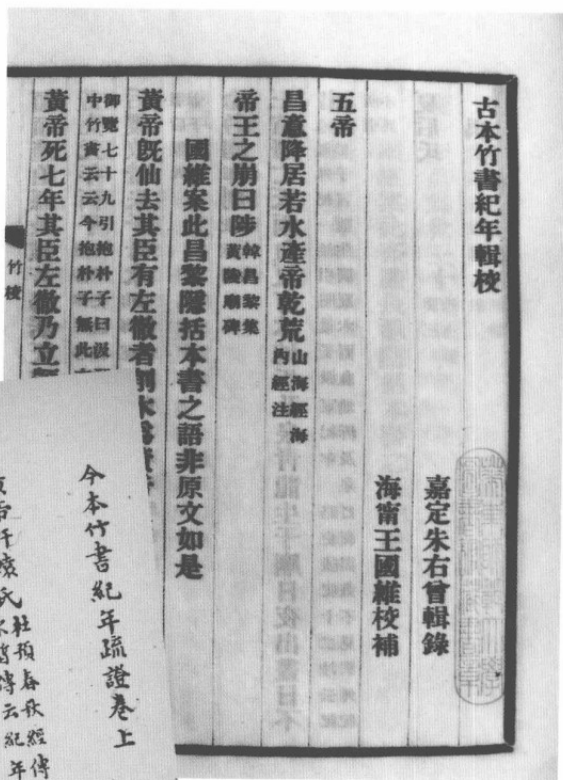 古本竹書紀年輯校
嘉定朱右曾輯錄
海甯王國維校補
五帝
昌意降居若水產帝乾荒山海經海
內經注
帝王之崩曰陟韓昌黎集
黃陵廟碑
國維案此昌黎隱括本書之語非原文如是
黃帝旣仙去其臣有左徹者削木爲黃帝
御覽七十九引抱朴子曰汲
中竹書云云今抱朴子無此
黃帝死七年其臣左徹乃立
竹校
今本竹書紀年疏證卷上
黃帝軒轅氏杜預春秋經傳